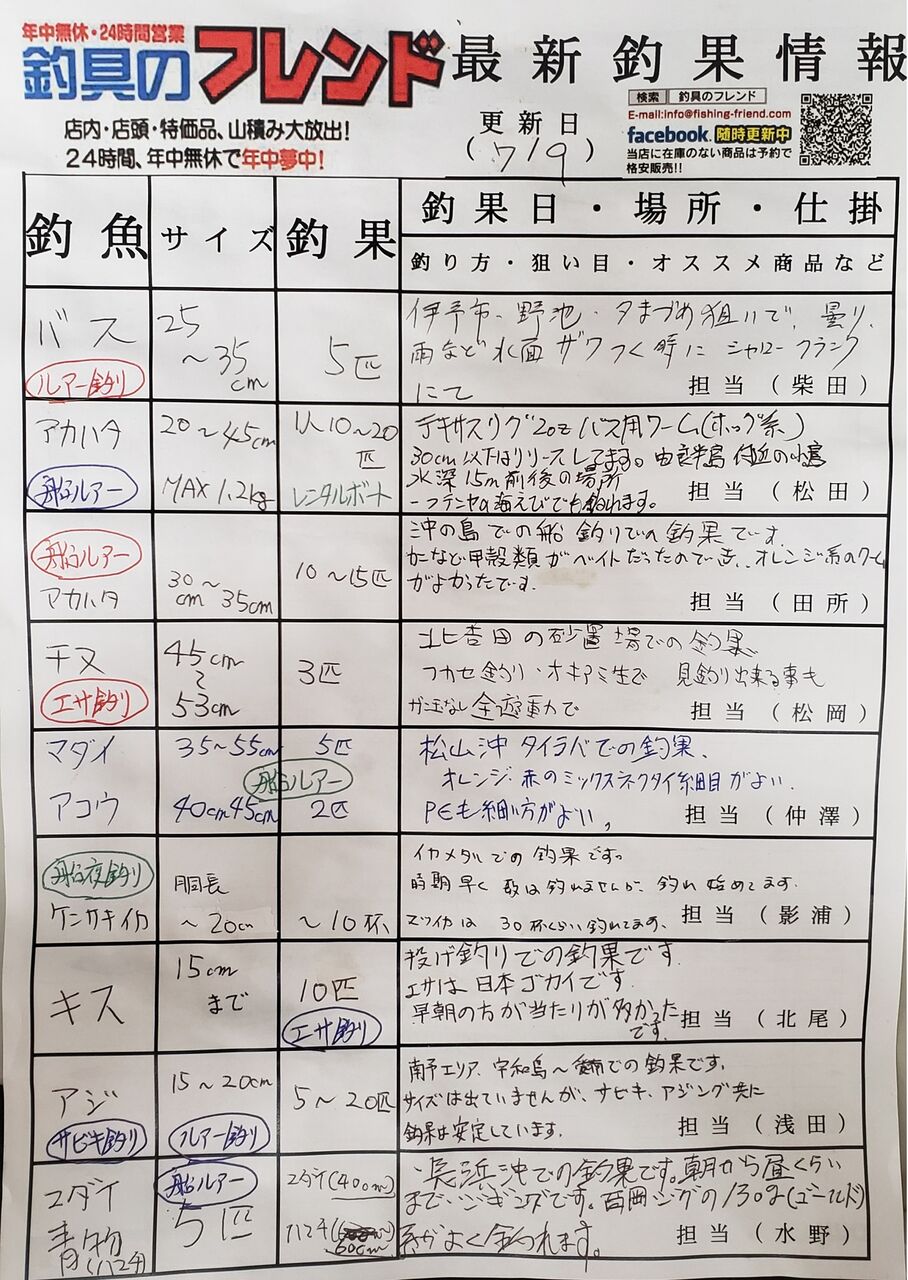 年中無休・24時間営業
釣具のフレンド
店内・店頭・特価品、山積み大放出!
24時間、年中無休で年中夢中!
最新釣果情報
更新日
(7/9)
検索 釣具のフレンド
E-mail:info@fishing-friend.com
facebook. 随時更新中
当店に在庫のない商品は予約で
格安販売!!
釣魚 サイズ 釣果 釣果日・場所・仕掛
釣り方・狙い目・オススメ商品など
バス
ルアー釣り
25
～35
cm
5匹
伊予市、野池・夕まづめ狙いで、曇り、
雨など水面ザワつく時に シャロークランク
にて
担当(柴田)
アカハタ
船ルアー
20～45cm
MAX 1.2kg
1人10～20
匹
レンタルボート
テキサスリグ2oz バス用ワーム(ホッグ系)
30cm以下はリリースしてます。由良半島付近の小島
水深15m前後の場所
担当(松田)
エフテックの海えびでも釣れます。
船ルアー
アカハタ
30～
cm 35cm
10～15匹
沖の島での船釣りでの釣果です。
カニなど甲殻類がベイトだったので、オレンジ系のワーム
がよかったです。
担当(田所)
チヌ
エサ釣り
45cm
～
53cm
3匹
北吉田の砂置場での釣果
フカセ釣り・オキアミ生で 見釣り出来る事も
ガン玉なし全遊動で
担当(松岡)
マダイ 35～55cm 5匹
船ルアー
アコウ 40cm45cm 2匹
松山沖 タイラバでの釣果、
オレンジ・赤のミックスネクタイ細目がよい.
PEも細い方がよい,
担当(仲澤)
船夜釣り
ケンサキイカ
胴長
～20cm
～10杯
イカメタルでの釣果です。
時期早く数は釣れませんが、釣れ始めてます.
マツイカは 30杯くらい釣れてます、
担当(影浦)
キス
15cm
まで
10匹
エサ釣り
投げ釣りでの釣果です
エサは、日本ゴカイです。
早朝の方が当たりが多かった
です.
担当(北尾)
アジ
サビキ釣り
15～20cm
ルアー釣り
5～20匹
南予エリア、宇和島～での釣果です。
サイズは出ていませんが、サビキ、アジング共に
釣果は安定しています.
担当(浅田)
マダイ
青物
(ハマチ)
船ルアー
5匹
マダイ(40cm)
ハマチ(60cm)
長浜沖での釣果です。朝から昼くらい
まで、ジギングです。ジグの130g(ゴールド)
系がよく釣れます。
担当(水野)